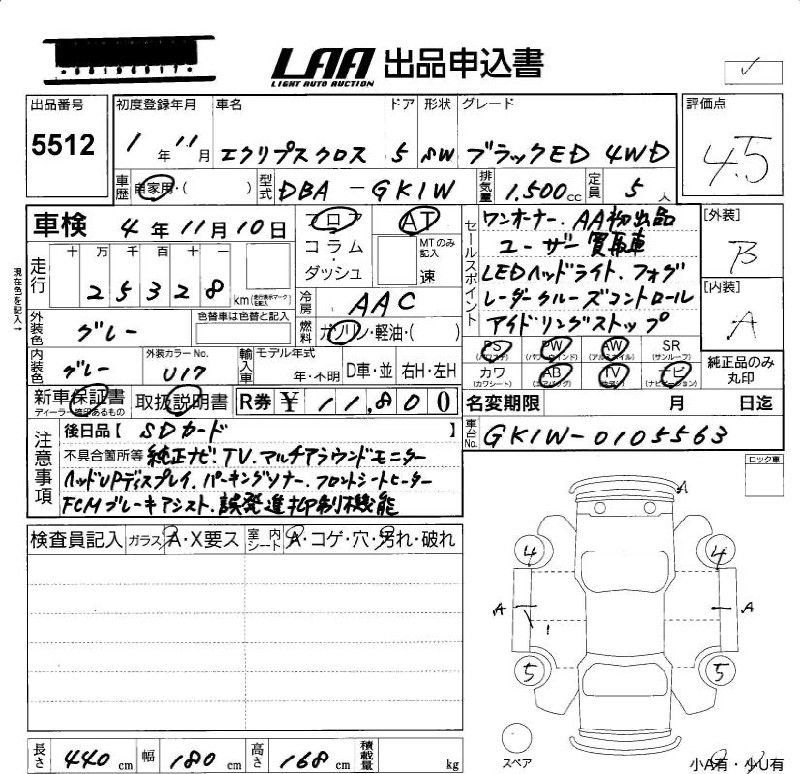 LAA 出品申込書
LIGHT AUTO AUCTION
出品番号 初度登録年月 車名 ドア 形状 グレード 評価点
5512 1年11月 エクリプスクロス 5 SW ブラックED 4WD 4.5
車歴 自家用・( ) 型式 DBA-GK1W 排気量 1.500cc 定員 5人
車検 4年11月10日 フロア AT セールスポイント ワンオーナー.AA初出品 [外装]
コラム・ダッシュ MTのみ記入 速 ユーザー買取車 B
走行 十 万 千 百 十 一 LEDヘッドライト.フォグ
現在色を記入→ 25328 km (走行表示マークを記入) 冷房 AAC レーダークルーズコントロール [内装]
外装色 グレー 色替車は色替と記入 燃料 ガソリン・軽油・( ) アイドリングストップ A
PS (パワステ) PW (パワーウインド) AW (アルミホイル) SR (サンルーフ)
内装色 グレー 外装カラーNo. U17 輸入車 モデル年式 年・不明 D車・並 右H・左H カワ (カワシート) AB (エアバッグ) TV (テレビ) ナビ (ナビゲーション) 純正品のみ丸印
新車保証書 取扱説明書 R券 ¥ 11,800 名変期限 月 日迄
ディーラー捺印あるもの
注意事項 後日品【 SDカード 】 車台No. GK1W-0105563
不具合箇所等 純正ナビ.TV.マルチアラウンドモニター ロック車
ヘッドUPディスプレイ.パーキングソナー.フロントシートヒーター
FCMブレーキアシスト.誤発進抑制機能
検査員記入 ガラス A・X要ス 室内シート A・コゲ・穴・汚れ・破れ
A
4 4
A A
1
5 5
スペア
長さ 440cm 幅 180cm 高さ 168cm 積載量 kg 小A有・小U有